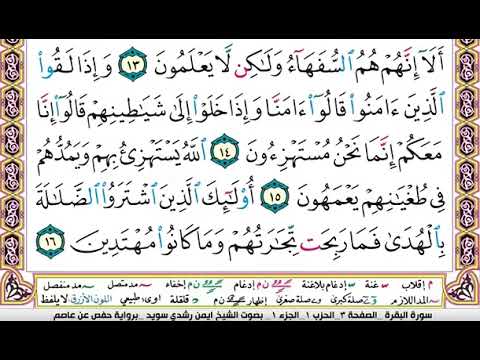 أَلَآ إِنَّهُمْ هُمُ ٱلسُّفَهَآءُ وَلَٰكِن لَّا يَعْلَمُونَ ١٣ وَإِذَا لَقُوا۟
ٱلَّذِينَ ءَامَنُوا۟ قَالُوٓا۟ ءَامَنَّا وَإِذَا خَلَوْا۟ إِلَىٰ شَيَٰطِينِهِمْ قَالُوٓا۟ إِنَّا
مَعَكُمْ إِنَّمَا نَحْنُ مُسْتَهْزِءُونَ ١٤ ٱللَّهُ يَسْتَهْزِئُ بِهِمْ وَيَمُدُّهُمْ
فِى طُغْيَٰنِهِمْ يَعْمَهُونَ ١٥ أُو۟لَٰٓئِكَ ٱلَّذِينَ ٱشْتَرَوُا۟ ٱلضَّلَٰلَةَ
بِٱلْهُدَىٰ فَمَا رَبِحَت تِّجَٰرَتُهُمْ وَمَا كَانُوا۟ مُهْتَدِينَ ١٦
م إقلاب س غنة إدغام بلاغنة ن م إدغام ن م إخفاء مد متصل مد منفصل
المد اللازم صلة كبرى صلة صغرى ن م إظهار قلقلة اوى: طبيعي اللون الأزرق لا يلفظ
سورة البقرة _ الصفحة ٣_ الحزب ١_ الجزء ١_ بصوت الشيخ ايمن رشدي سويد _ برواية حفص عن عاصم